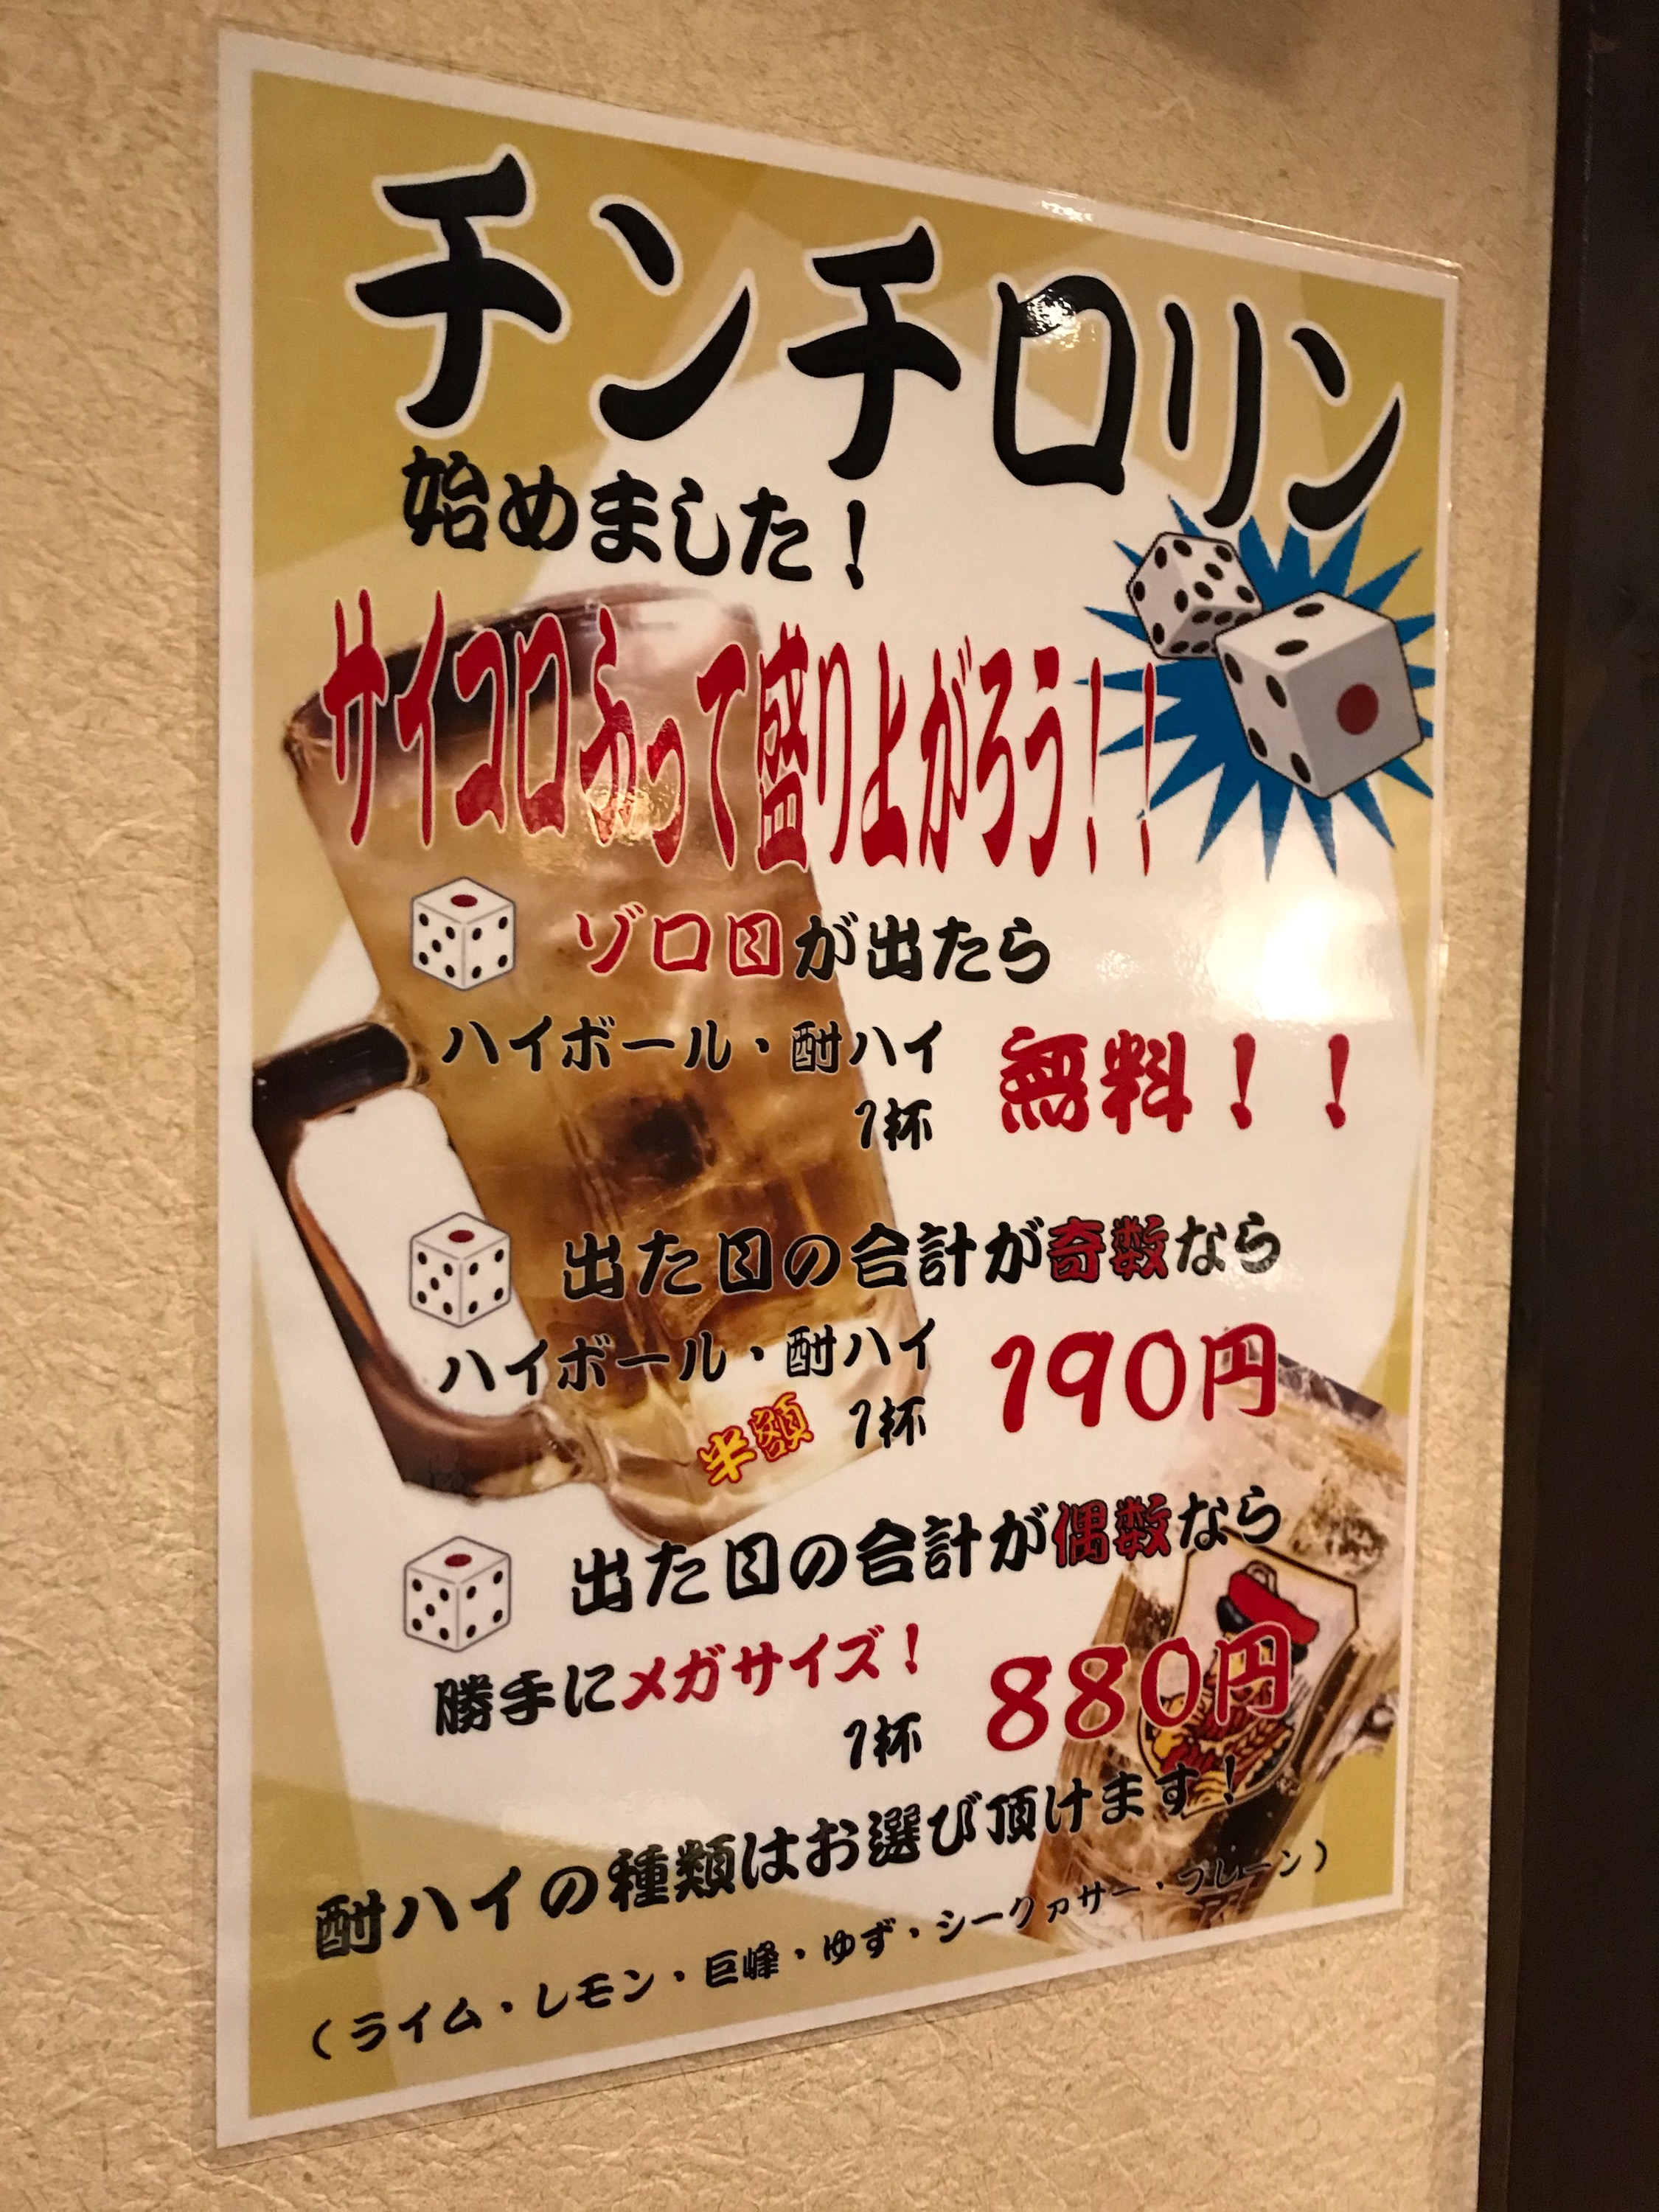 チンチロリン
始めました！
サイコロふって盛り上がろう！！
ゾロ目が出たら
ハイボール・酎ハイ
1杯 無料！！
出た目の合計が奇数なら
ハイボール・酎ハイ
半額 1杯 190円
出た目の合計が偶数なら
勝手にメガサイズ！
1杯 880円
酎ハイの種類はお選び頂けます！
（ライム・レモン・巨峰・ゆず・シークァサー・プレーン）